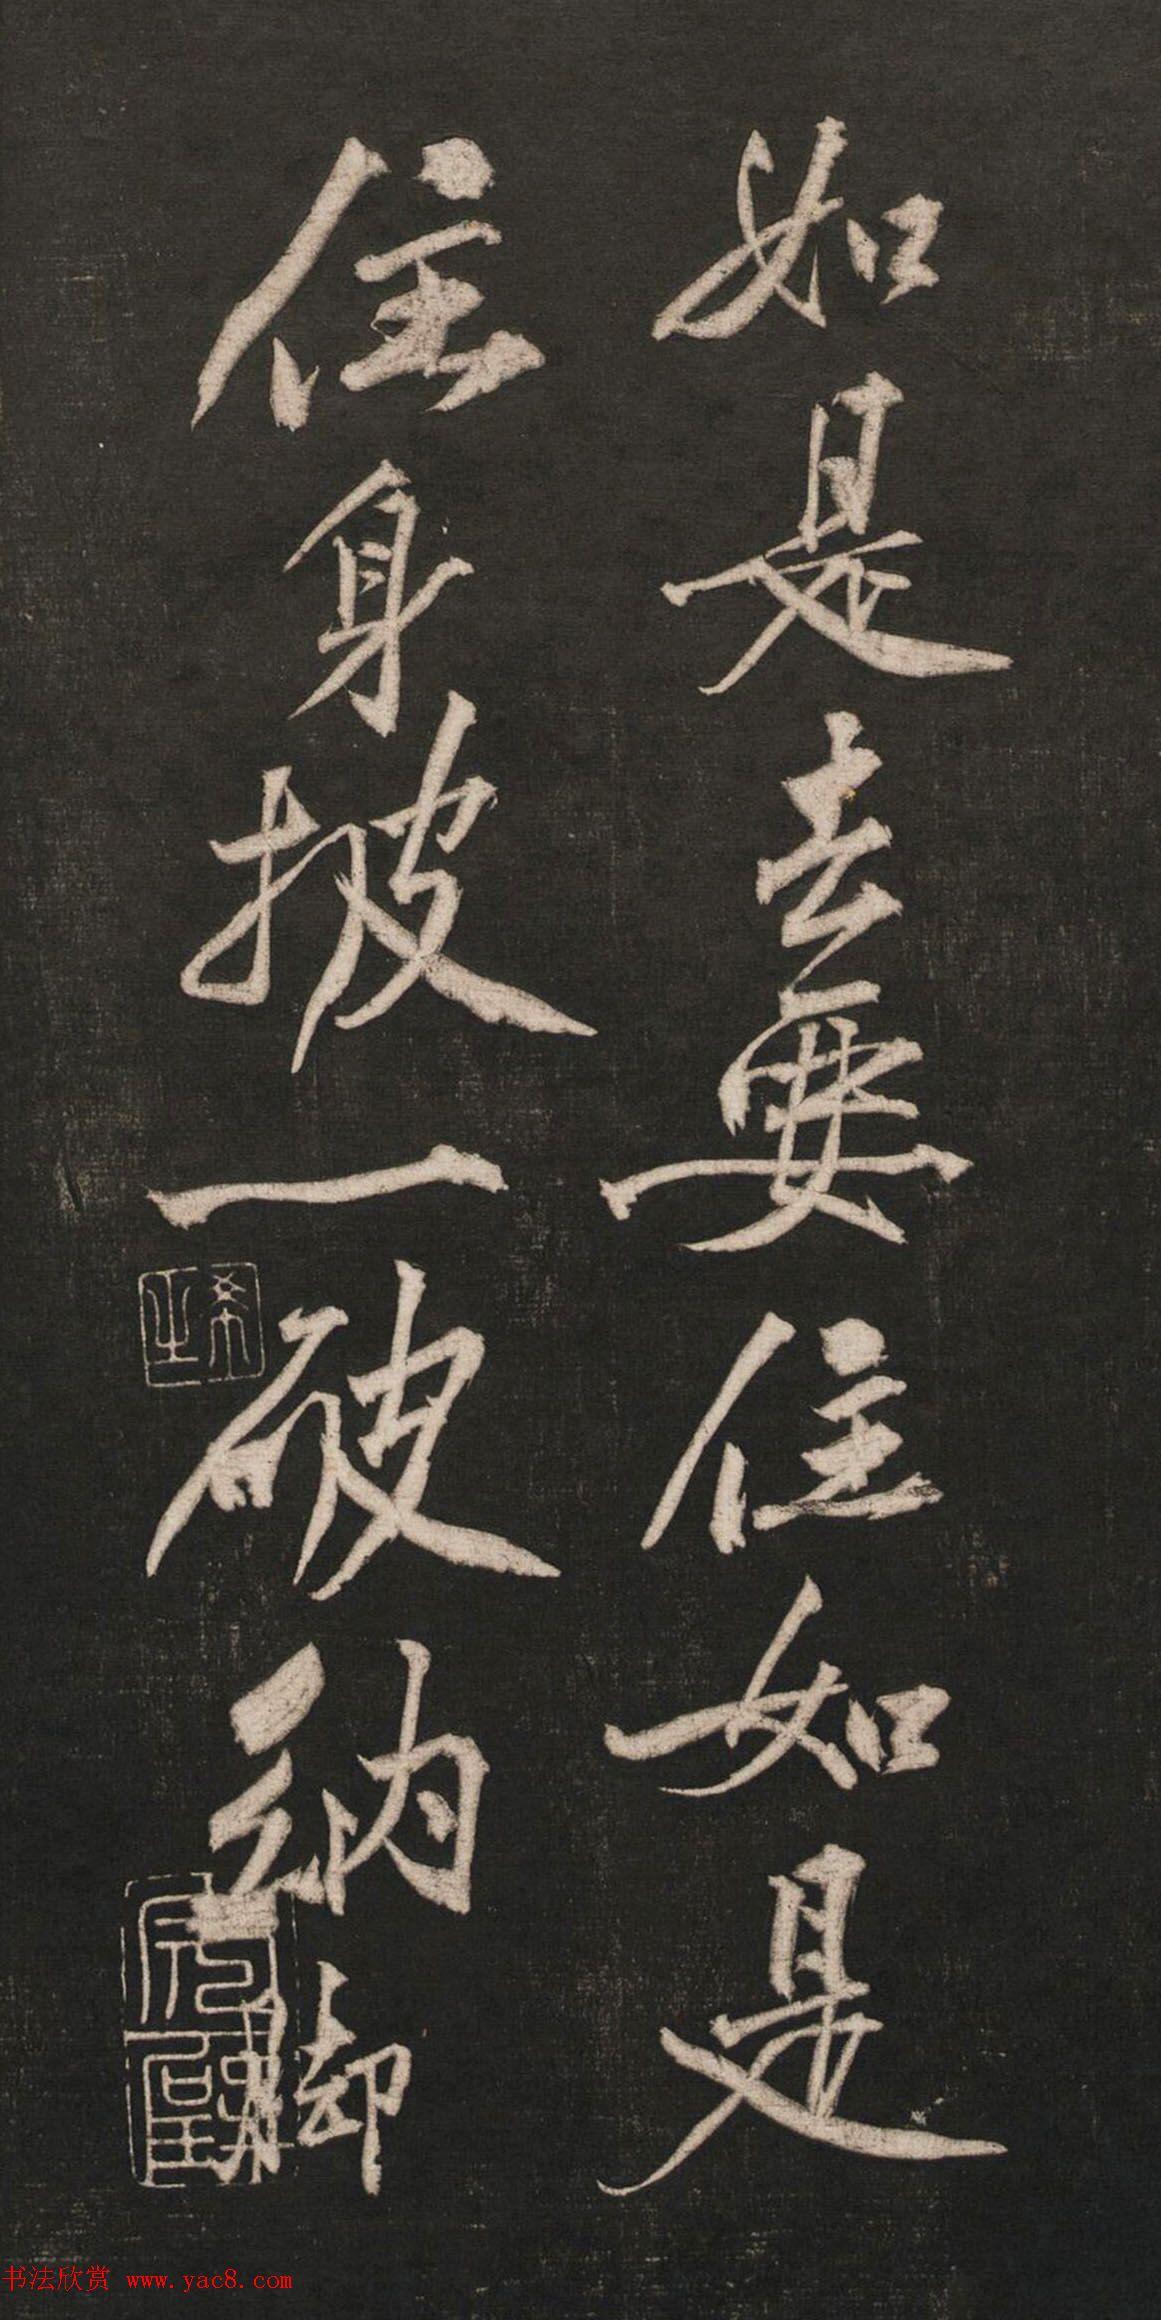 如是去要住如是
住身披一破纳脚
希之
书法欣赏 www.yac8.com